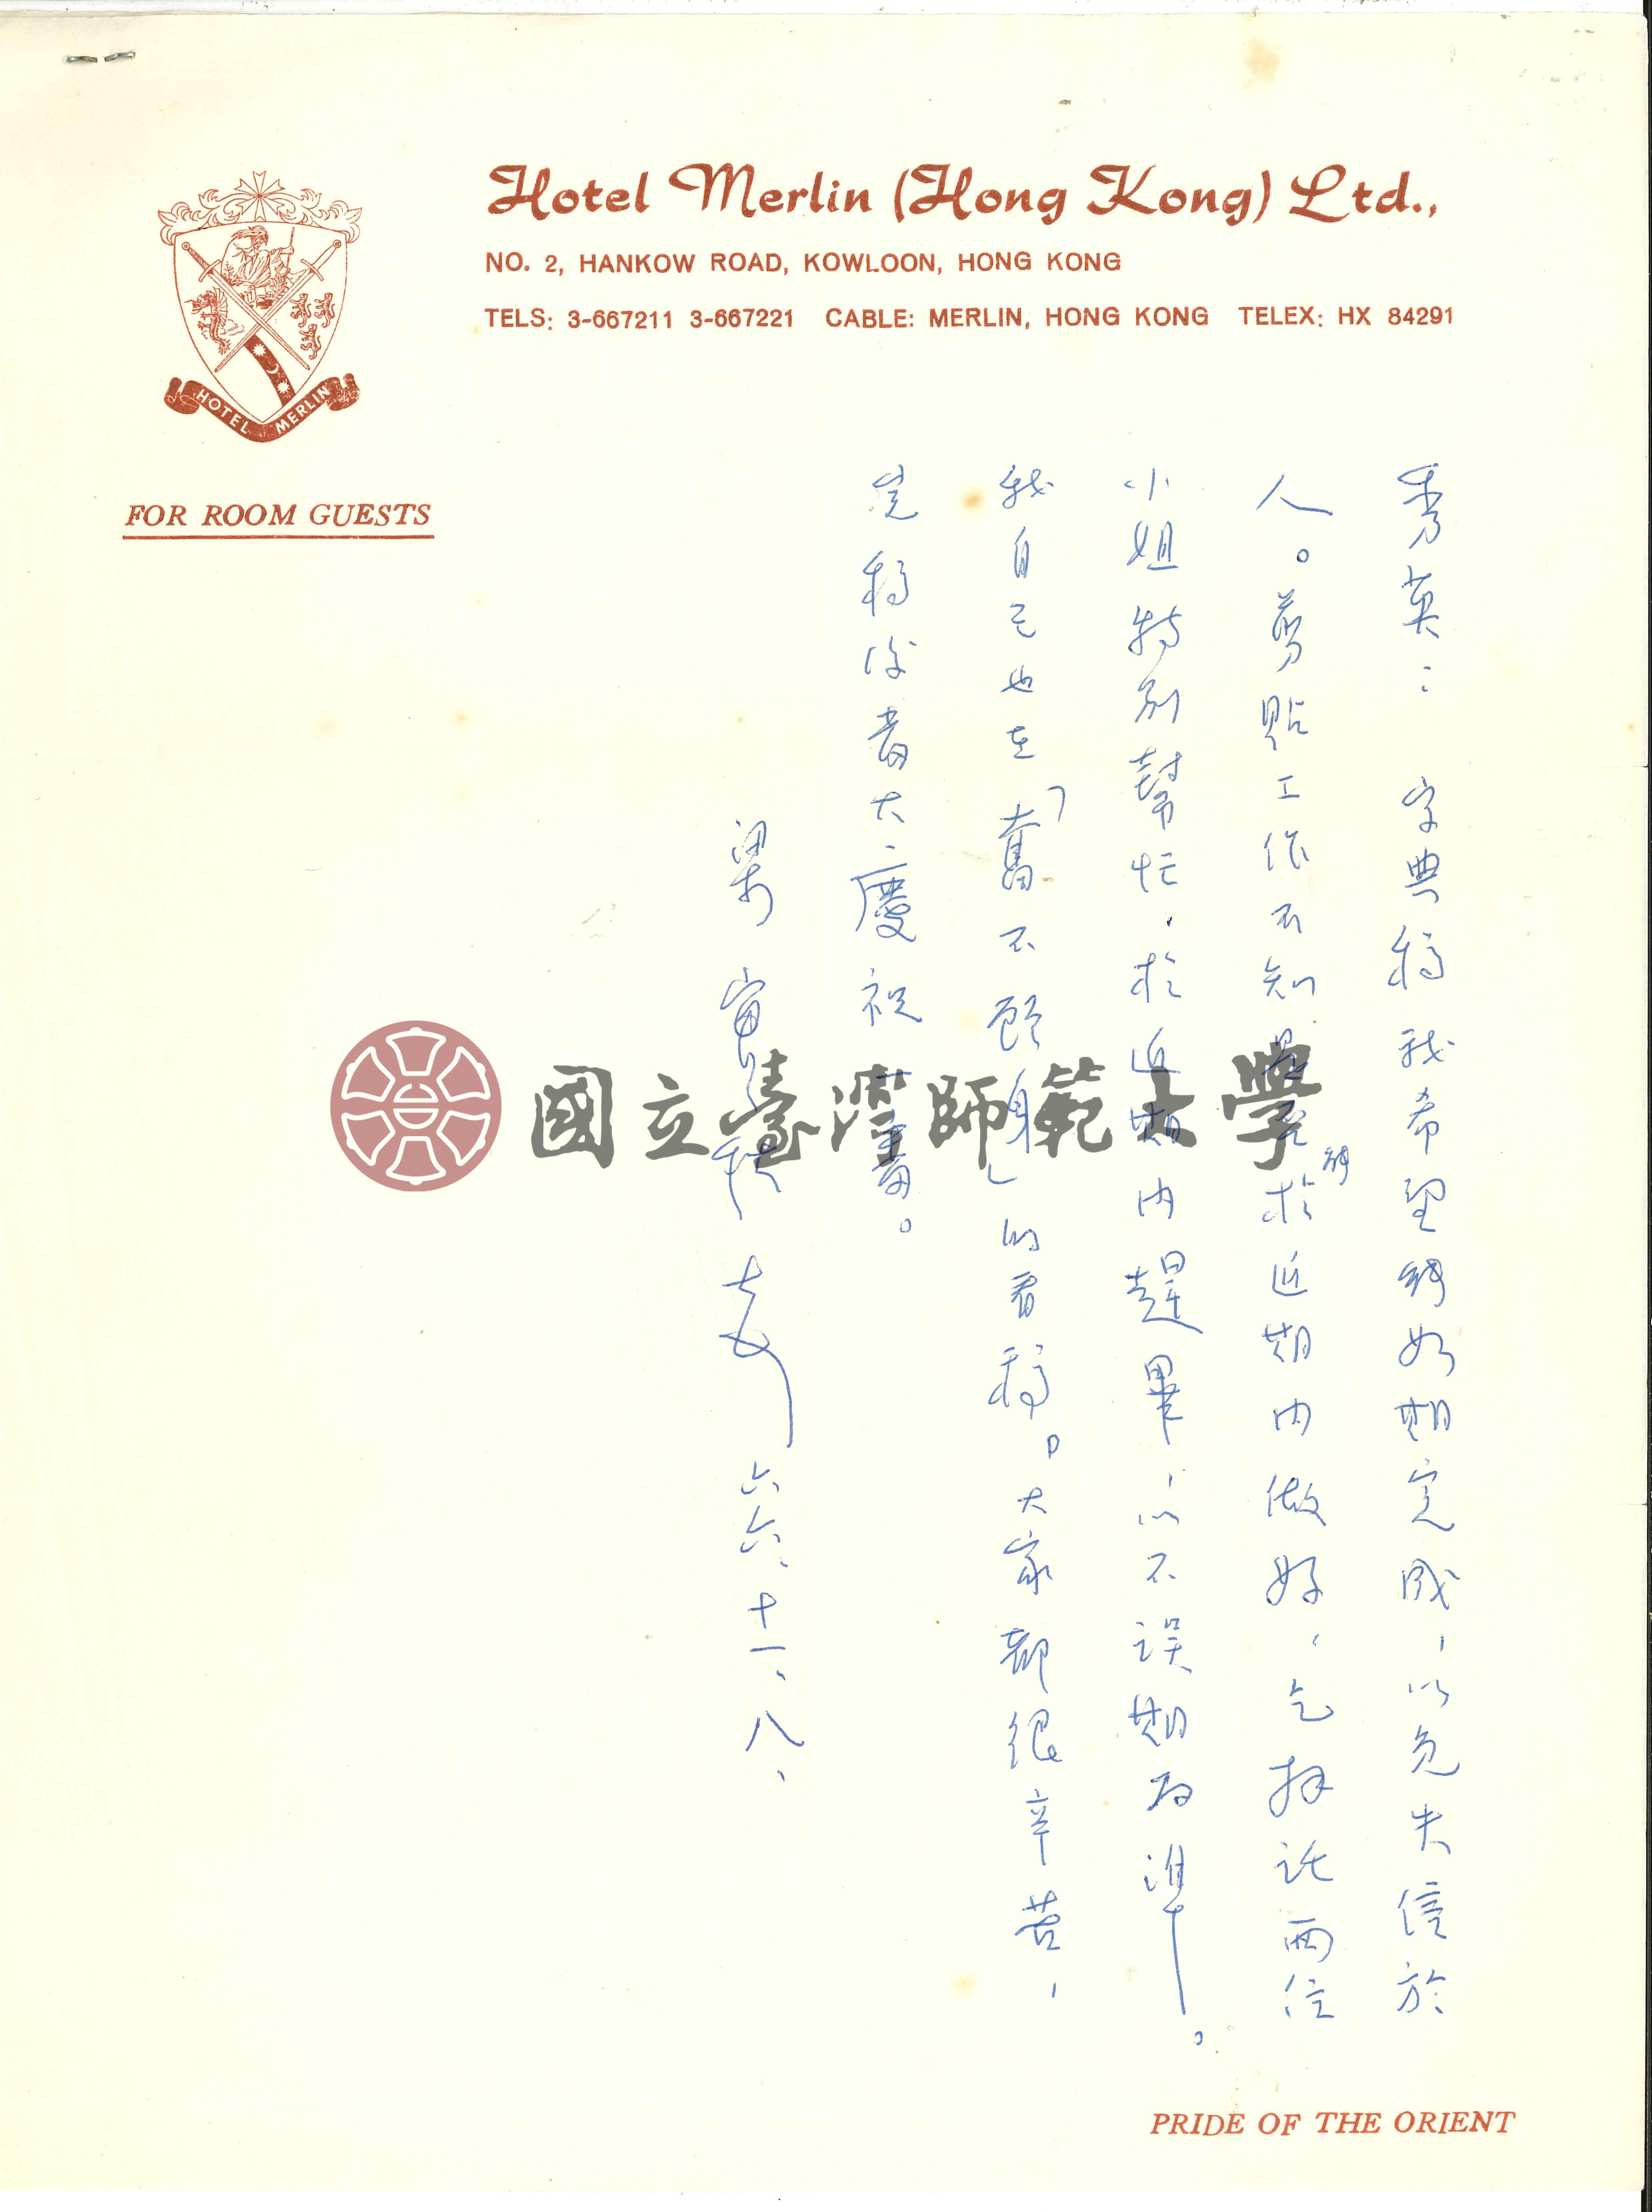 Hotel Merlin (Hong Kong) Ltd.,
NO. 2, HANKOW ROAD, KOWLOON, HONG KONG
TELS: 3-667211 3-667221 CABLE: MERLIN, HONG KONG TELEX: HX 84291
HOTEL MERLIN
FOR ROOM GUESTS
秀英： 字典稿我希望能如期完成，以免失信於
人。剪貼工作不知是否能於近期內做好，乞拜託兩位
小姐特別幫忙，於近期內趕畢，以不誤期為準。
我自己也在「奮不顧身」的看稿。大家都很辛苦，
完稿後當大大慶祝一番。
梁實秋 六六、十一、八、
國立臺灣師範大學
PRIDE OF THE ORIENT